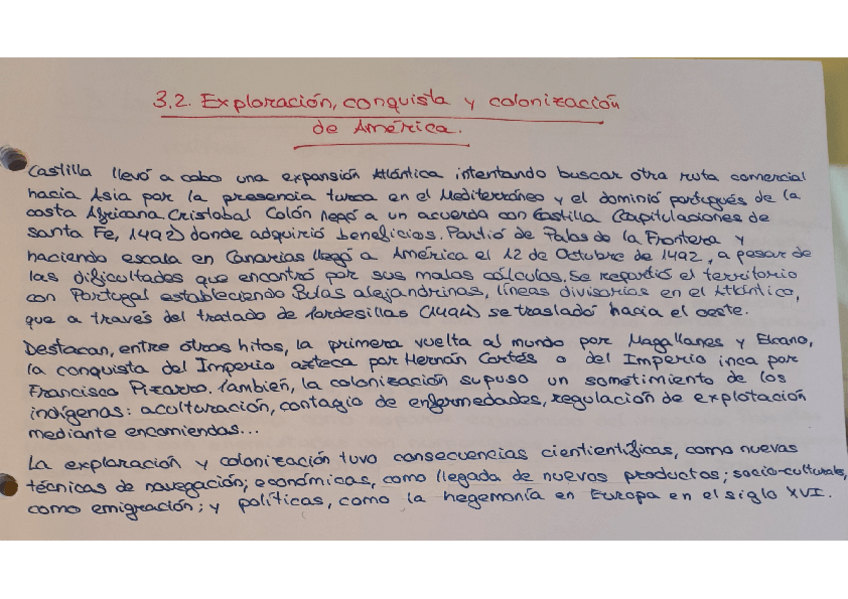 3.2. Exploración, conquista y colonización
de América.
Castilla llevó a cabo una expansión Atlántica intentando buscar otra ruta comercial
hacia Asia por la presencia turca en el Mediterráneo y el dominio portugués de la
costa Africana. Cristobal Colón llegó a un acuerdo con Castilla (Capitulaciones de
santa Fe, 1492) donde adquirió beneficios. Partió de Palos de la Frontera y
haciendo escala en Canarias llegó a América el 12 de Octubre de 1492, a pesar de
las dificultades que encontró por sus malos cálculos. Se repartió el territorio
con Portugal estableciendo Bulas alejandrinas, líneas divisorias en el Atlántico,
que a través del tratado de Tordesillas (1494) se trasladó hacia el oeste.
Destacan, entre otros hitos, la primera vuelta al mundo por Magallanes y Elcano,
la conquista del Imperio azteca por Hernán Cortés o del Imperio inca por
Francisco Pizarro. También, la colonización supuso un sometimiento de los
indígenas: aculturación, contagio de enfermedades, regulación de explotación
mediante encomiendas...
La exploración y colonización tuvo consecuencias cientientíficas, como nuevas
técnicas de navegación; económicas, como llegada de nuevos productos; socio-culturales,
como emigración; y políticas, como la hegemonía en Europa en el siglo XVI.